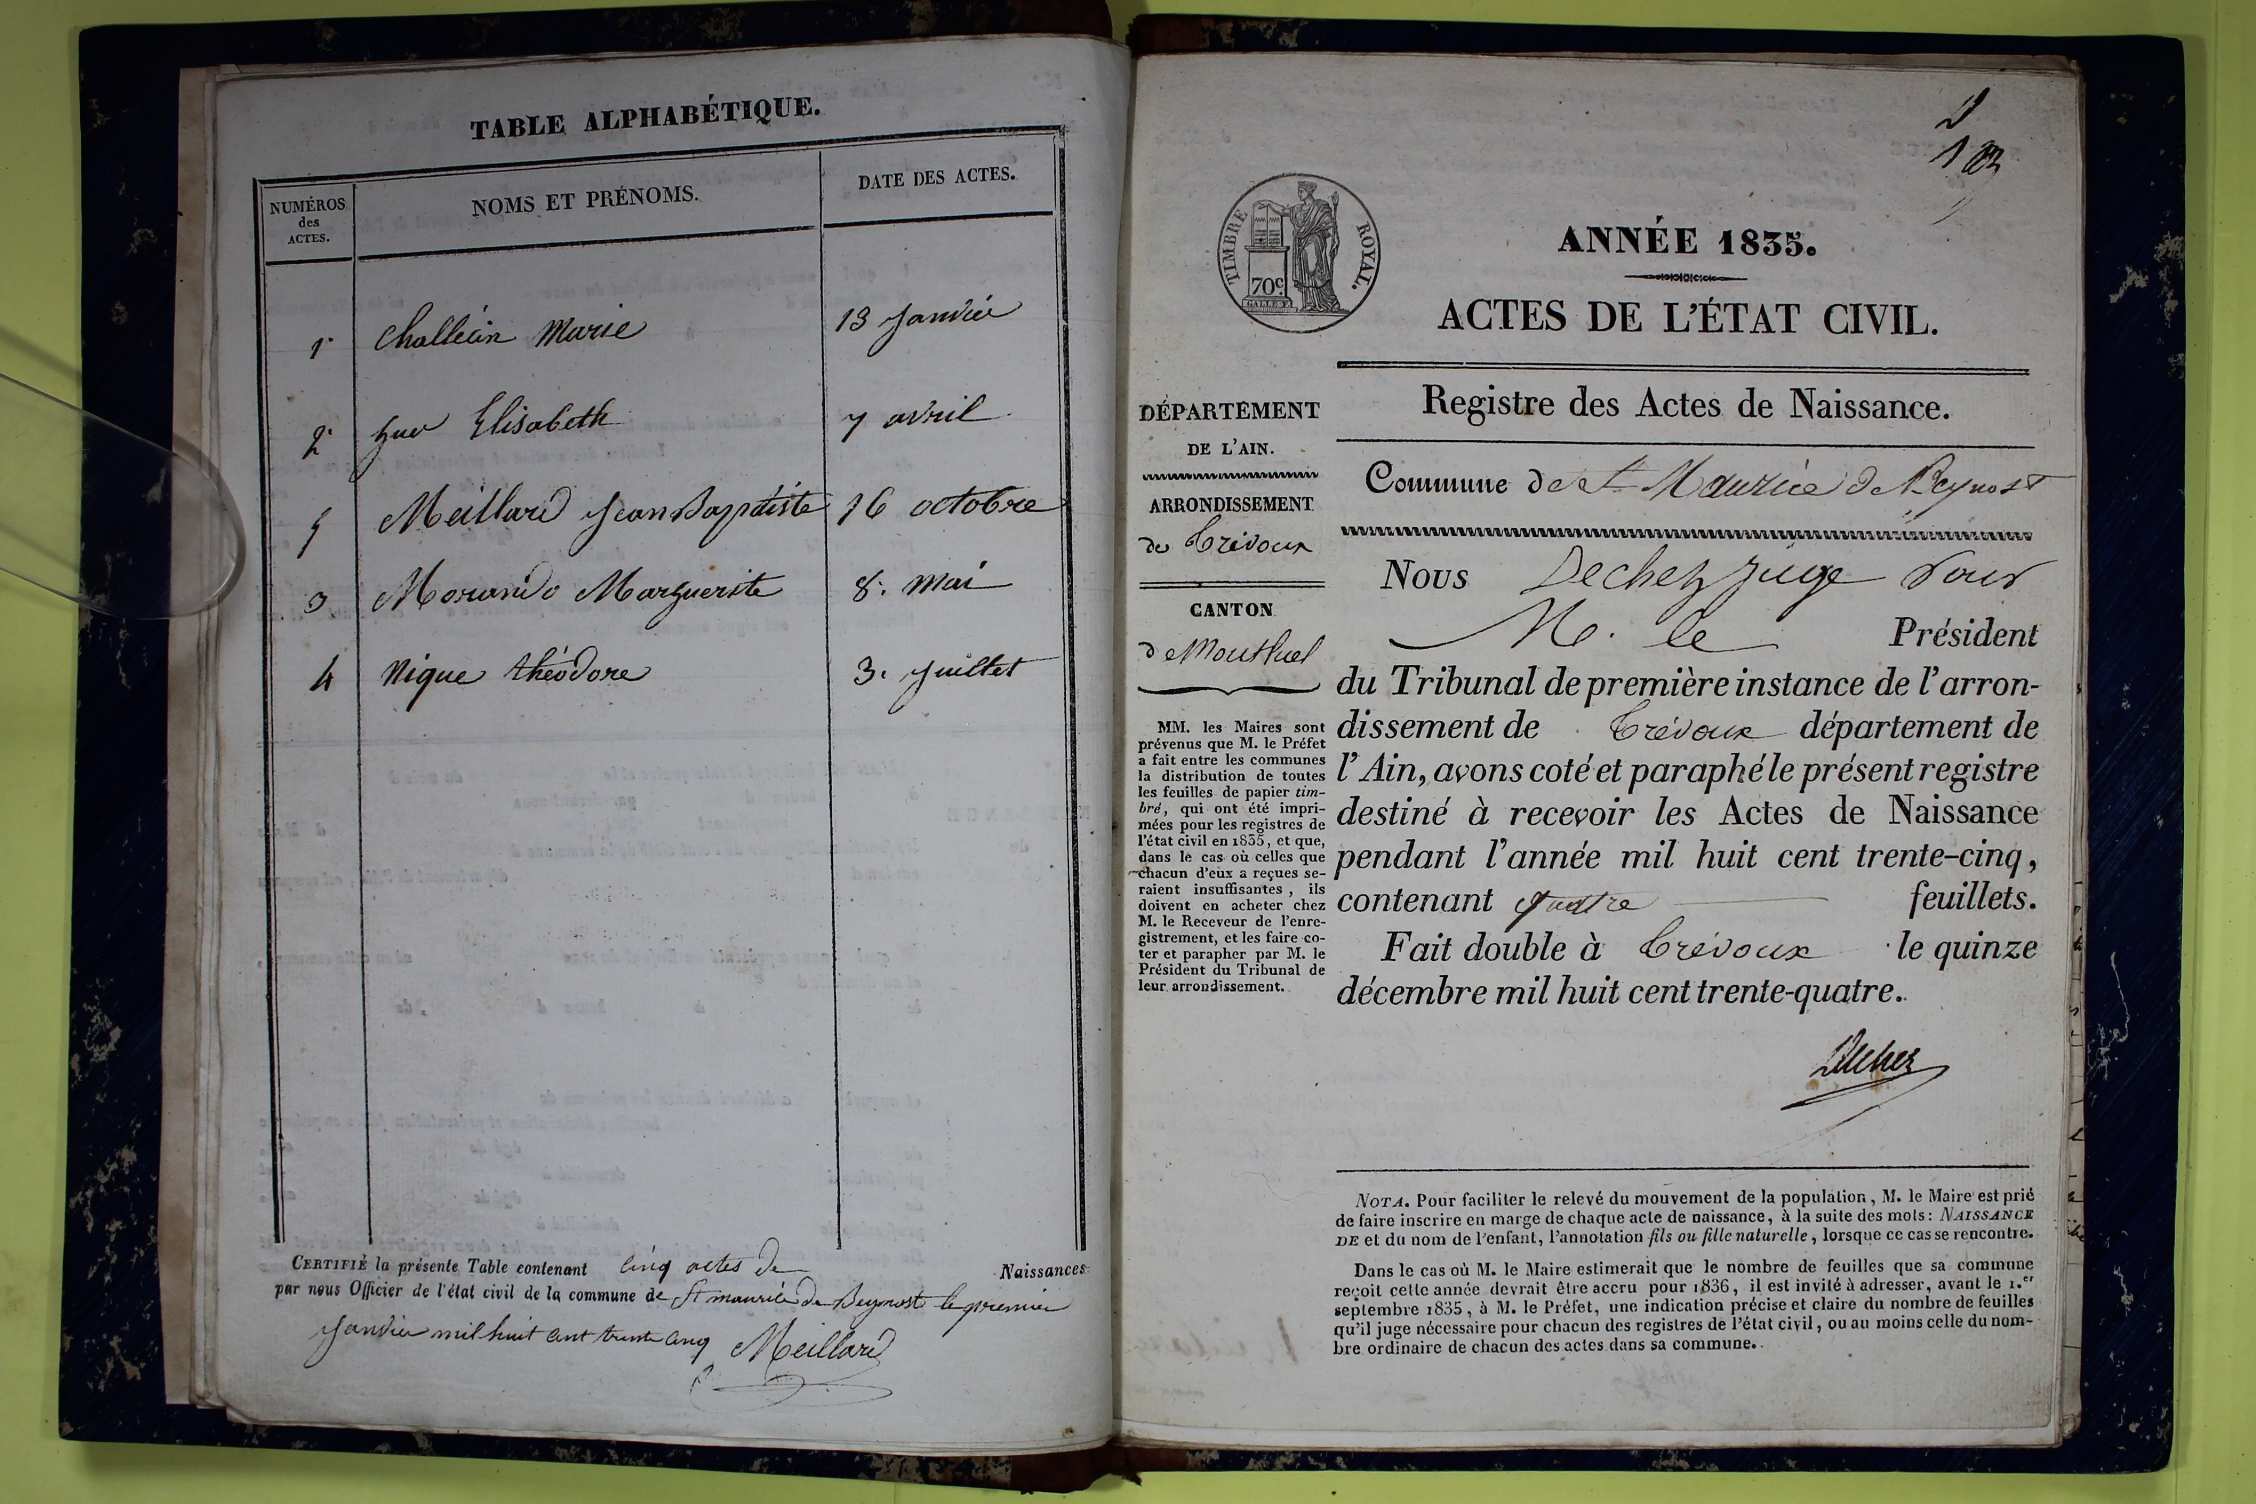 TABLE ALPHABÉTIQUE.
NUMÉROS des ACTES.
NOMS ET PRÉNOMS.
DATE DES ACTES.
1. Challéin Marie 13 Janvier
2. huv Elisabeth 7 avril
5 Meillard Jean Baptiste 16 octobre
3 Morando Marguerite 8. Mai
4 Nique théodore 3. Juillet
CERTIFIÉ la présente Table contenant cinq actes de Naissances
par nous Officier de l'état civil de la commune de St maurice de Beynost le premier
Janvier mil huit cent trente cinq Meillard
TIMBRE ROYAL.
70c.
ANNÉE 1835.
ACTES DE L'ÉTAT CIVIL.
Registre des Actes de Naissance.
Commune de St Maurice de Beynost
DÉPARTEMENT
DE L'AIN.
ARRONDISSEMENT
de Trévoux
CANTON
de Montluel
MM. les Maires sont
prévenus que M. le Préfet
a fait entre les communes
la distribution de toutes
les feuilles de papier tim-
bré, qui ont été impri-
mées pour les registres de
l'état civil en 1835, et que,
dans le cas où celles que
chacun d'eux a reçues se-
raient insuffisantes, ils
doivent en acheter chez
M. le Receveur de l'enre-
gistrement, et les faire co-
ter et parapher par M. le
Président du Tribunal de
leur arrondissement.
Nous Dechez Juge pour
M. le Président
du Tribunal de première instance de l'arron-
dissement de Trévoux département de
l'Ain, avons coté et paraphé le présent registre
destiné à recevoir les Actes de Naissance
pendant l'année mil huit cent trente-cinq,
contenant quatre feuillets.
Fait double à Trévoux le quinze
décembre mil huit cent trente-quatre.
Dechez
NOTA. Pour faciliter le relevé du mouvement de la population, M. le Maire est prié
de faire inscrire en marge de chaque acte de naissance, à la suite des mots: NAISSANCE
DE et du nom de l'enfant, l'annotation fils ou fille naturelle, lorsque ce cas se rencontre.
Dans le cas où M. le Maire estimerait que le nombre de feuilles que sa commune
reçoit cette année devrait être accru pour 1836, il est invité à adresser, avant le 1.er
septembre 1835, à M. le Préfet, une indication précise et claire du nombre de feuilles
qu'il juge nécessaire pour chacun des registres de l'état civil, ou au moins celle du nom-
bre ordinaire de chacun des actes dans sa commune.